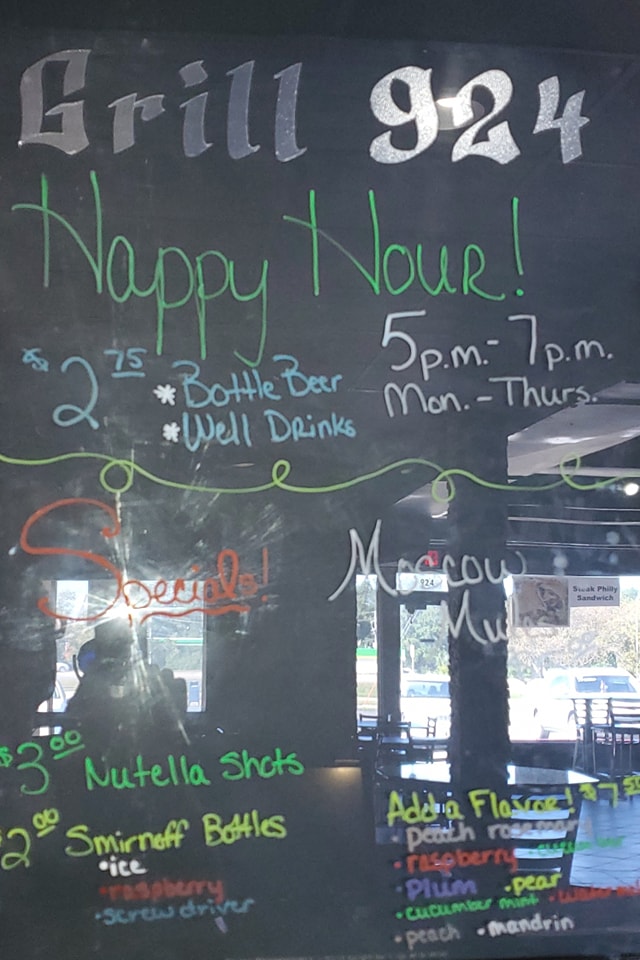 Grill 924
Happy Hour!
$2.75
*Bottle Beer
*Well Drinks
5p.m.- 7p.m.
Mon.-Thurs.
Specials!
Moscow
Mules
924
Steak Philly
Sandwich
$3.00 Nutella Shots
2.00 Smirnoff Bottles
•ice
•raspberry
•screw driver
Add a Flavor! $7.50
•peach rosemary
•raspberry
•Plum •pear
•cucumber mint
•peach •mandrin